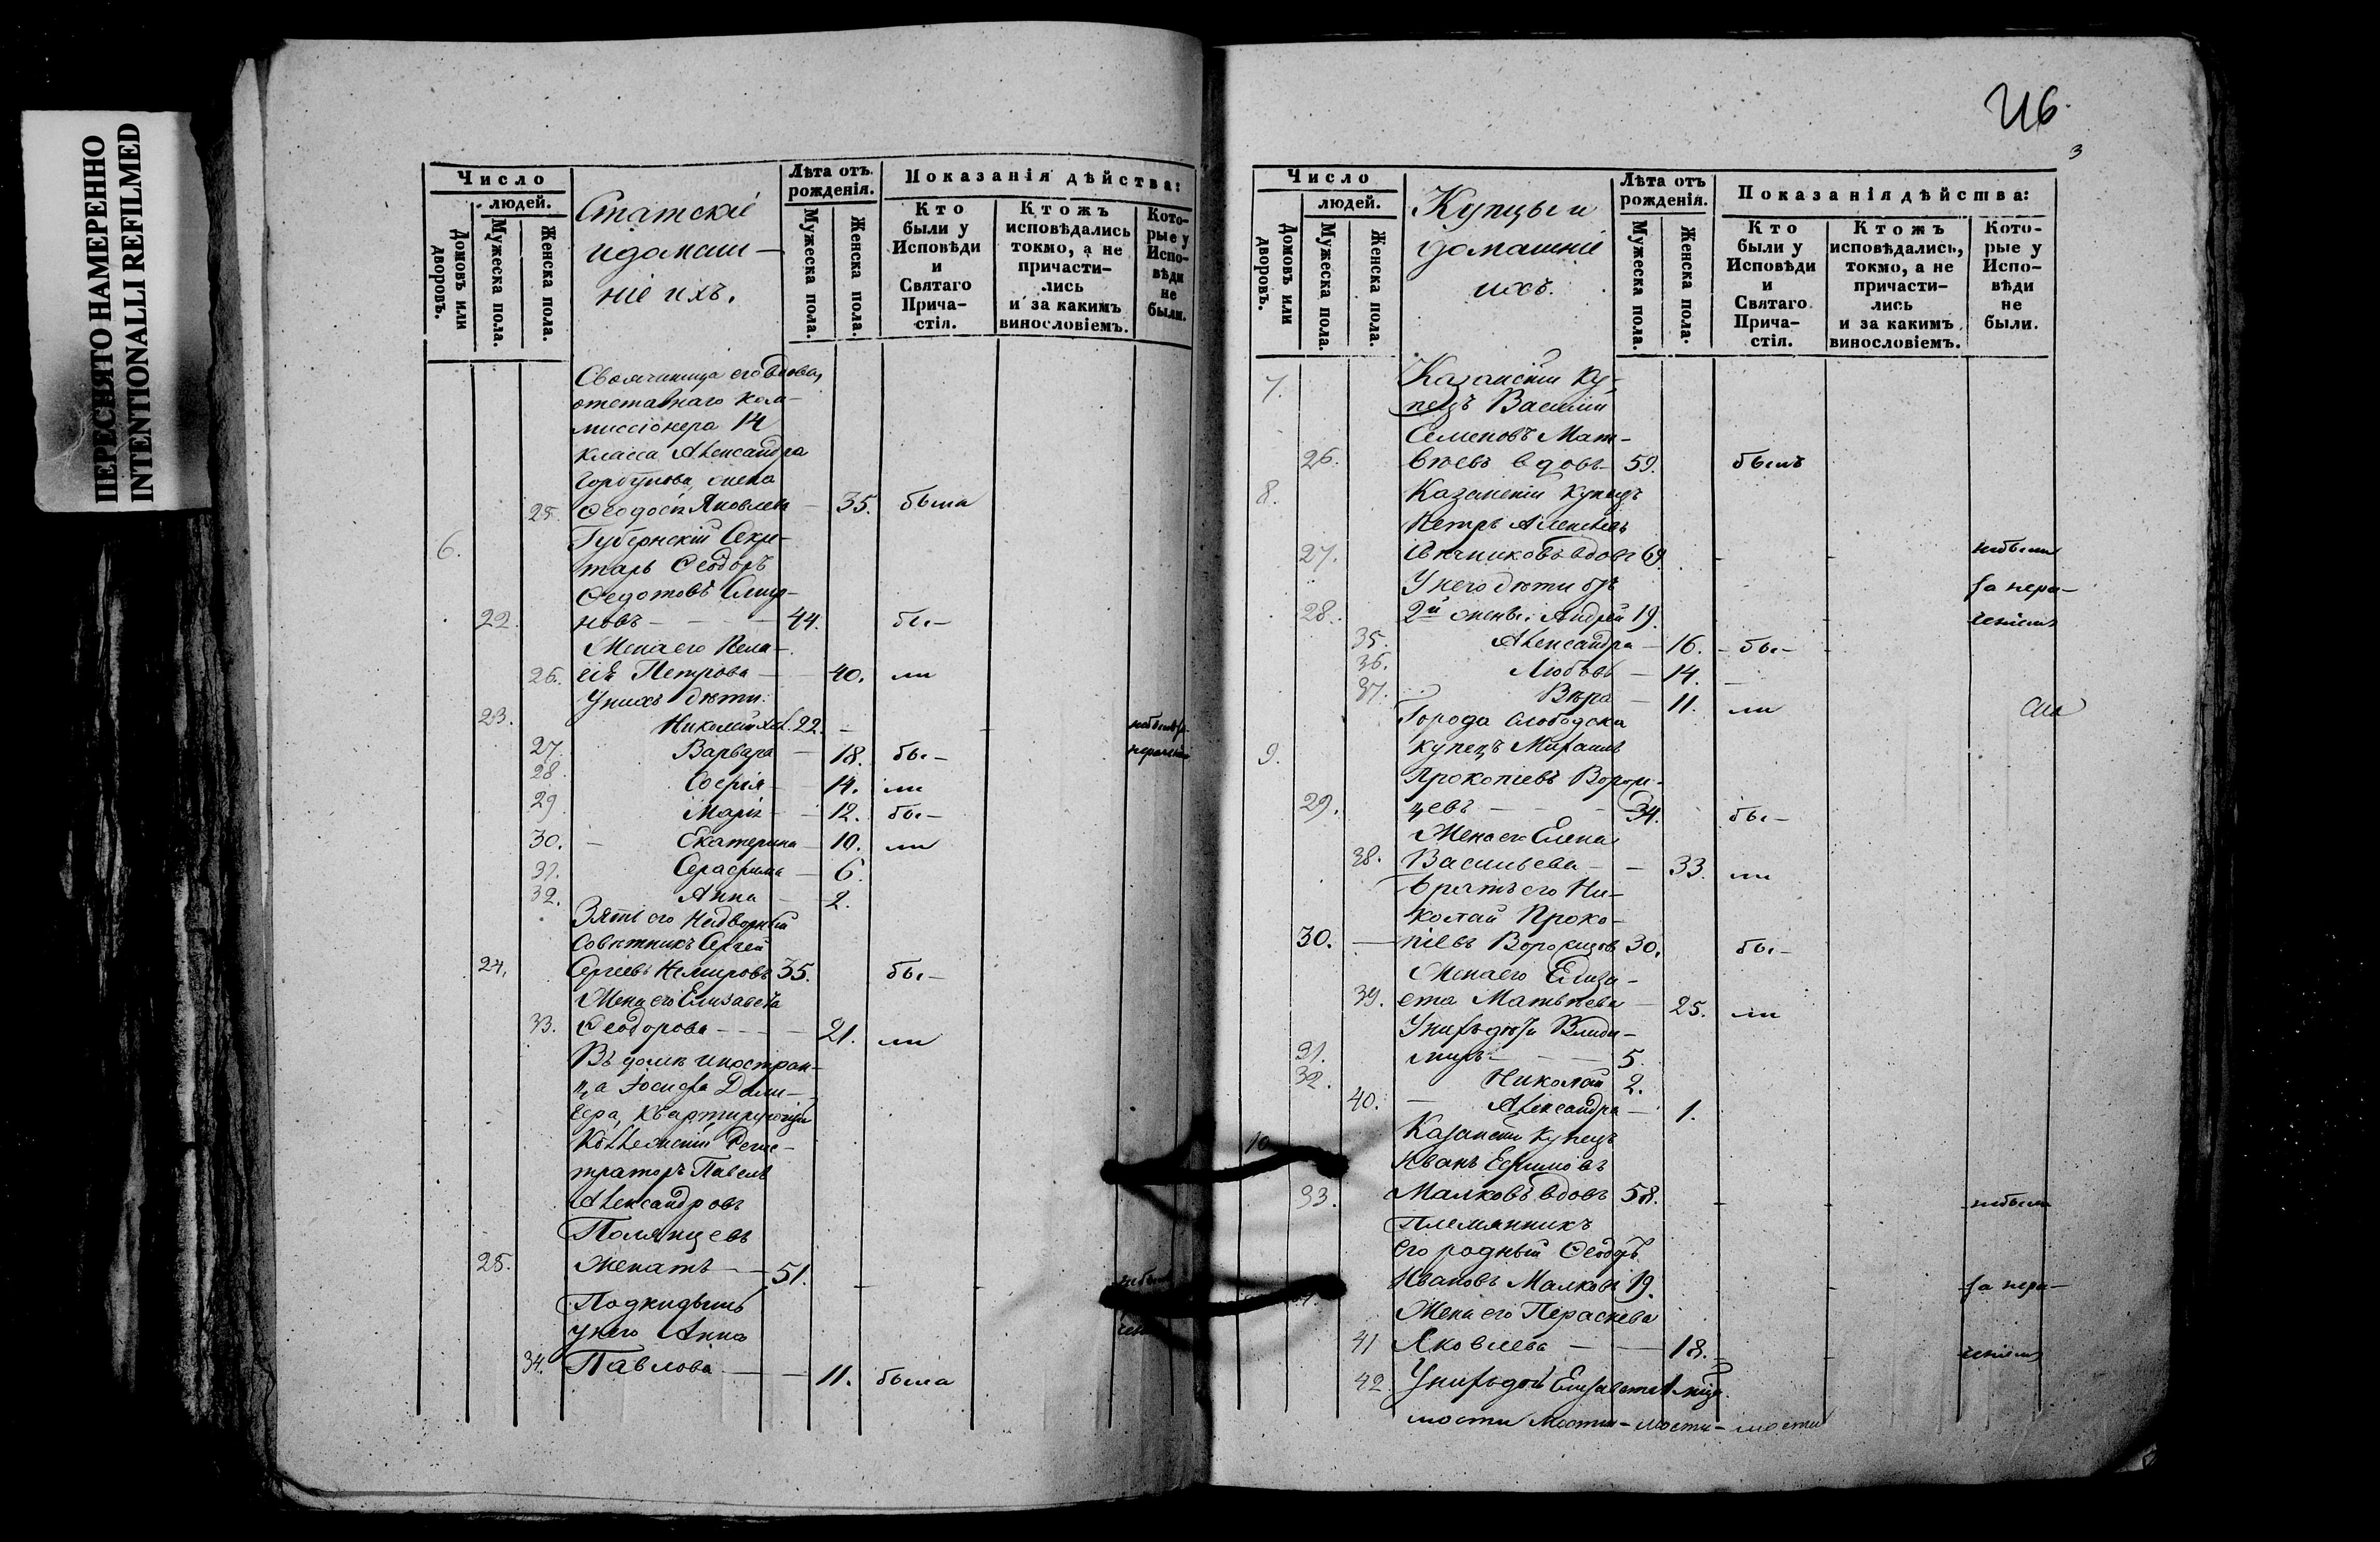 ПЕРЕСНЯТО НАМЕРЕННО
INTENTIONALLI REFILMED
Число
людей.
Домовъ или дворовъ.
Мужеска пола.
Женска пола.
Статскіе
и домаш-
ніе ихъ.
Лѣта отъ рожденія.
Мужеска пола.
Женска пола.
Показанія дѣйства:
Кто были у Исповѣди и Святаго Прича-стія.
Ктожъ исповѣдались токмо, а не причасти-лись и за какимъ винословіемъ.
Кото-рые у Испо-вѣди не были.
Своячиница его вдова,
отставнаго ком-
миссіонера 14
класса Александра
Горбунова жена
25. Ѳеодосія Яковлева 35. была
6. Губернскій Секре-
тарь Ѳеодоръ
Ѳедотовъ Смир-
22. новъ 44. бы-
Жена его Пела-
26. гія Петрова 40. ли
У нихъ дѣти:
23. Николай хол. 22. небылъ за
27. Варвара 18. бы- нераченіемъ
28. Софія 14. ли
29. Марія 12. бы-
30. Екатерина 10. ли
31. Серафима 6.
32. Анна 2.
Зять его Надворный
Совѣтникъ Сергей
24. Сергіевъ Немировъ 35. бы-
Жена его Елизавета
33. Ѳеодорова 21. ли
Въ домѣ иностран-
ца Іосифа
квартирующій
Коллежскій Реги-
траторъ Павелъ
Александровъ
Полянцевъ
25. женатъ 51.
Подкидышъ
у него Анна
34. Павлова 11. была
3
Число
людей.
Домовъ или дворовъ.
Мужеска пола.
Женска пола.
Купцы и
домашніе
ихъ.
Лѣта отъ рожденія.
Мужеска пола.
Женска пола.
Показанія дѣйства:
Кто были у Исповѣди и Святаго Прича-стія.
Ктожъ исповѣдались, токмо, а не причасти-лись и за какимъ винословіемъ.
Кото-рые у Испо-вѣди не были.
7. Казанскій Ку-
пецъ Василій
Семеновъ Мат-
26. вѣевъ вдовъ 59. былъ
8. Казанскій купецъ
Петръ Алексѣевъ
27. вдовъ 69. небыли
У него дѣти отъ за нера-
28. 2й жены: Андрей 19. ченіемъ
35. Александра 16. бы-
36. Любовь 14.
37. Вѣра 11. ли
Города Слободска
9. купецъ Михаилъ
Прокопіевъ Ворон-
29. цевъ 34. бы-
Жена его Елена
38. Васильева 33. ли
Братъ его Ни-
колай Проко-
30. піевъ 30. бы-
Жена его Елиза-
39. ета Матвѣева 25. ли
У нихъ дѣти Влади-
31. миръ 5.
32. Николай 2.
40. Александра 1.
10 Казанскій купецъ
Иванъ Ефимовъ
33. Малковъ вдовъ 58. небыли
Племянникъ
его родный Ѳеодоръ
Ивановъ Малковъ 19. за нера-
Жена его Параскева
41 Яковлева 18. ченіемъ
42 У нихъ дочь Елизавета
мости мости - мости - мости